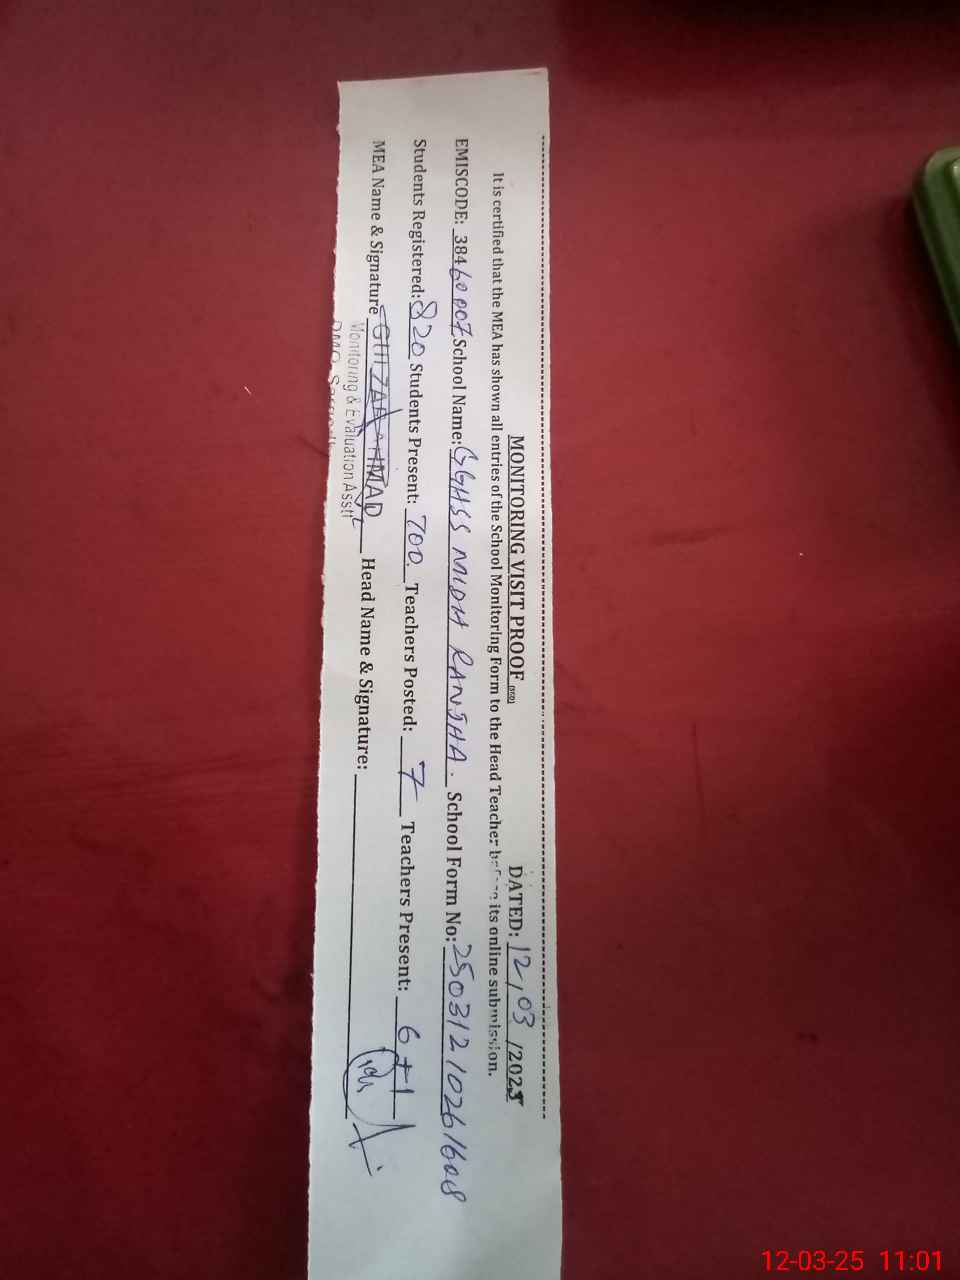 MONITORING VISIT PROOF DATED: 12/03/2025
It is certified that the MEA has shown all entries of the School Monitoring Form to the Head Teacher before its online submission.
EMISCODE: 38460007 School Name: GGHSS MIDH RANJHA. School Form No: 25031210261608
Students Registered: 820 Students Present: 700 Teachers Posted: 7 Teachers Present: 6+1
MEA Name & Signature GULZAR AHMAD Head Name & Signature:
Monitoring & Evaluation Asstt
DMO Sargodha
12-03-25 11:01